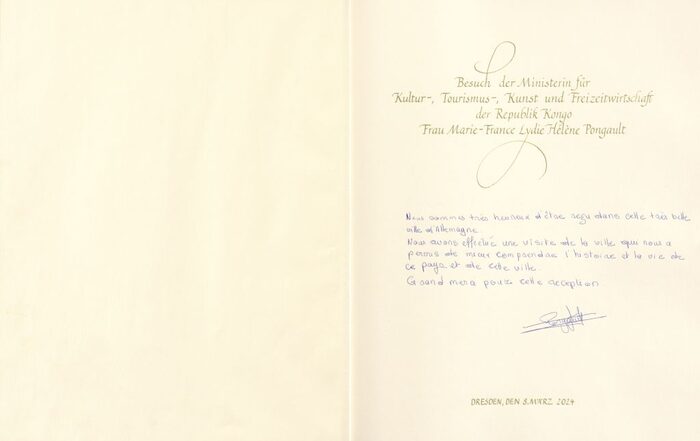 Besuch der Ministerin für
Kultur-, Tourismus-, Kunst und Freizeitwirtschaft
der Republik Kongo
Frau Marie-France Lydie Hélène Pongault
Nous sommes très heureux d'être reçu dans cette très belle
ville d'Allemagne.
Nous avons effectué une visite de la ville qui nous a
permis de mieux comprendre l'histoire et la vie de
ce pays et de cette ville.
Grand merci pour cette reception
DRESDEN, DEN 8. MÄRZ 2024